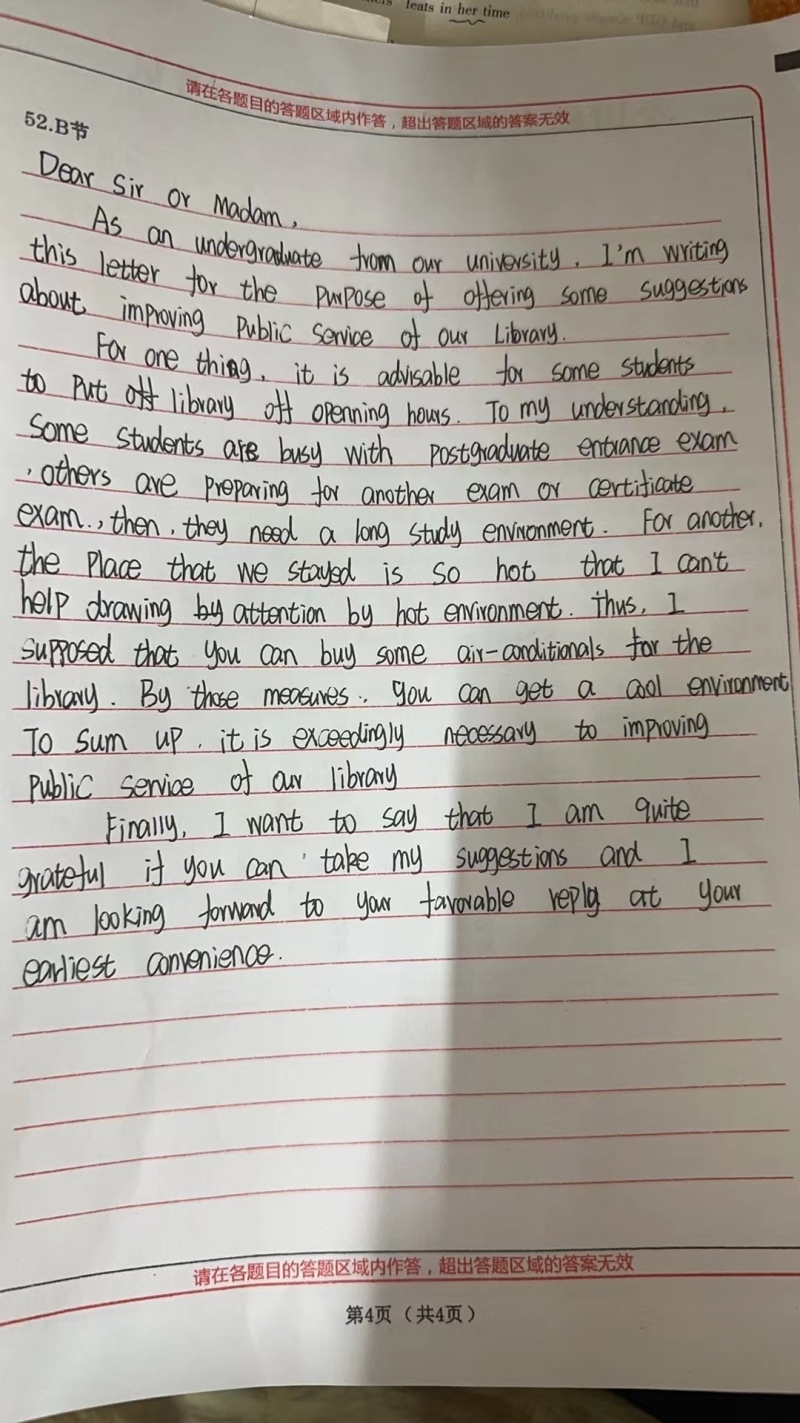 feats in her time
请在各题目的答题区域内作答，超出答题区域的答案无效
52.B节
Dear Sir or Madam,
As an undergraduate from our university, I'm writing
this letter for the purpose of offering some suggestions
about improving Public Service of our Library.
For one thing, it is advisable for some students
to put off library off openning hours. To my understanding,
Some students are busy with postgraduate entrance exam
, others are preparing for another exam or certificate
exam., then, they need a long study environment. For another,
the place that we stayed is so hot that I can't
help drawing by attention by hot environment. Thus, I
supposed that you can buy some air-conditionals for the
library. By those measures, you can get a cool environment
To sum up, it is exceedingly necessary to improving
public service of our library
Finally, I want to say that I am quite
grateful if you can take my suggestions and I
am looking forward to your favorable reply at your
earliest convenience.
请在各题目的答题区域内作答，超出答题区域的答案无效
第4页（共4页）